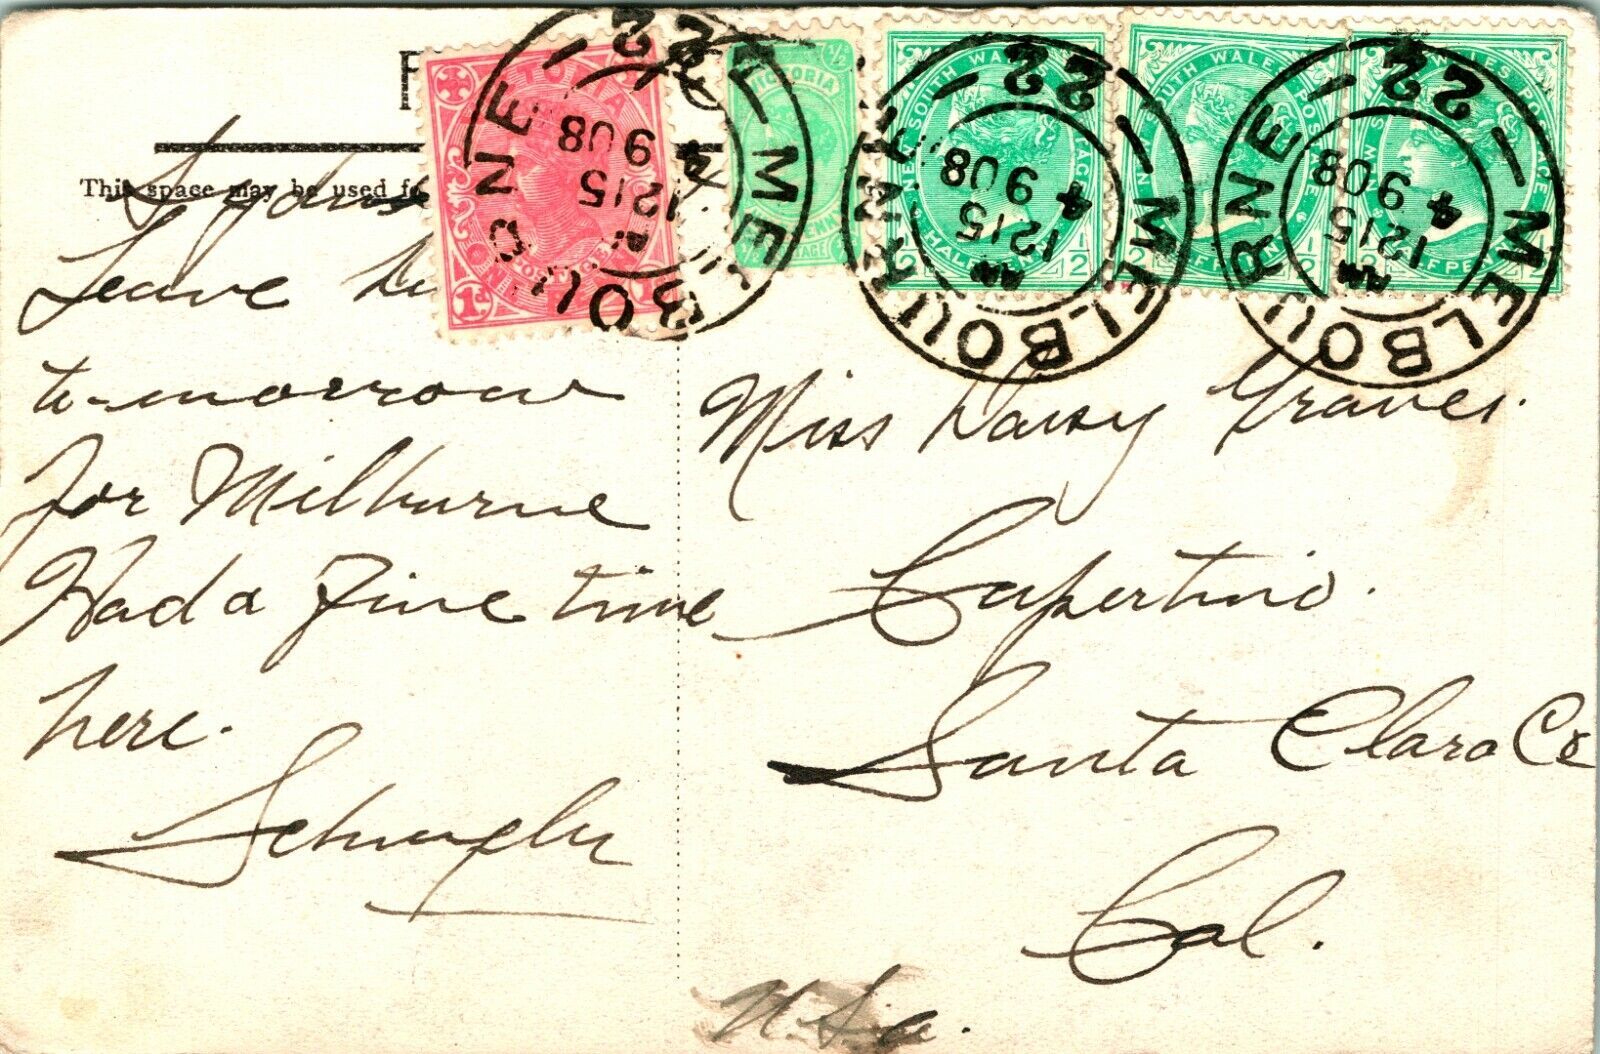 This space may be used fo
Sydn
Leave
to-morrow
for Milburne
Had a Fine time
here.
VICTORIA
1d
VICTORIA
1/2
NEW SOUTH WALES POSTAGE
HALFPENNY
1/2
SOUTH WALES POSTAGE
1/2
WALES POSTAGE
HALFPENNY
1/2
MELBOURNE 22
12 15
4 9 08
MELBOURNE 22
12 15
4 9 08
MELBOURNE 22
12 15
4 9 08
Miss Daisy Graves.
Cupertino.
Santa Clara Co
Cal.
U.S.a.